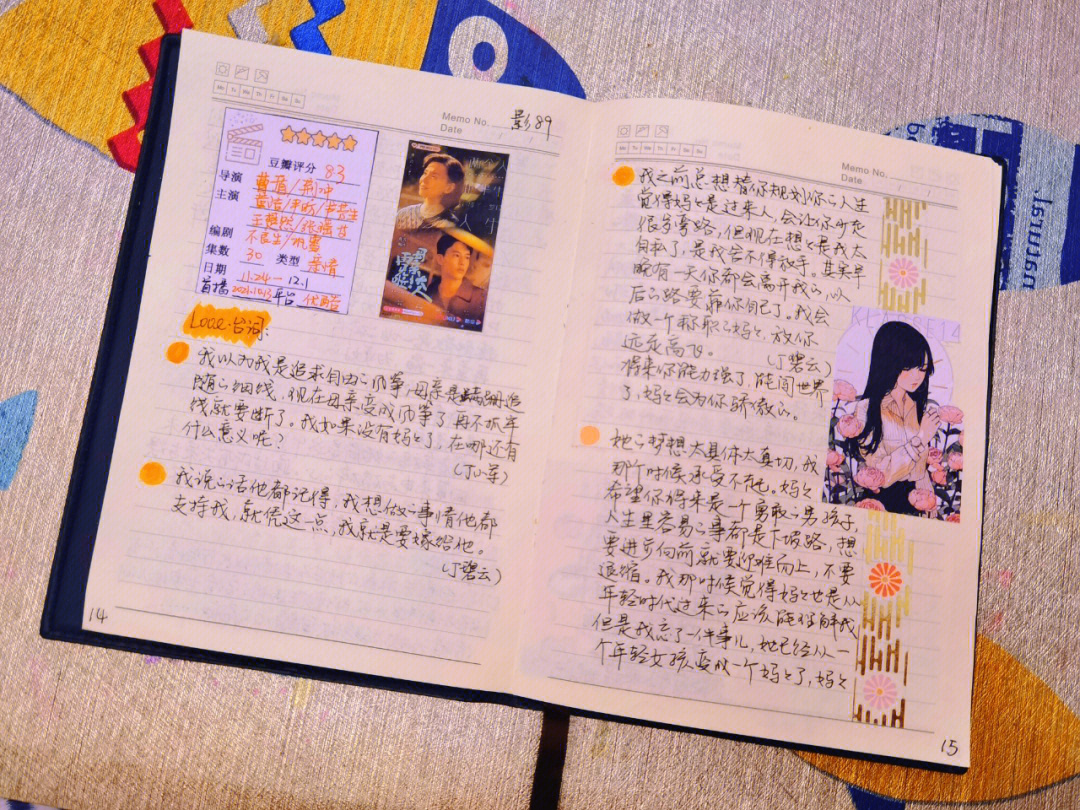 Memo No.
影89
Date
Mo Tu We Th Fr Sa Su
豆瓣评分 8.3
导演 曹盾/
主演
编剧
集数 30 类型 亲情
日期 11.24 — 12.1
首播 2021.10.13 平台 优酷
Love·台词:
我以为我是追求自由的风筝,母亲是蹒跚追
随的细线,现在母亲变成风筝了再不抓牢
线就要断了。我如果没有妈妈了,在哪还有
什么意义呢?
(丁小军)
我说的话他都记得,我想做的事情他都
支持我,就凭这一点,我就是要嫁给他。
(丁碧云)
14
Memo No.
Date
Mo Tu We Th Fr Sa Su
我之前总想替你规划你的人生
觉得妈妈是过来人,会让你少走
很多弯路,但现在想想是我太
自私了,是我舍不得放手。其实早
晚有一天你都会离开我的,以
后的路要靠你自己了。我会
做一个称职的妈妈,放你
远走高飞。 (丁碧云)
将来你能力强了,能闯世界
了,妈妈会为你骄傲的。
她的梦想太具体太真切,我
那个时候承受不起。妈妈
希望你将来是一个勇敢的男孩子,
人生里容易的事都是下坡路,想
要进步向前就要迎难而上,不要
退缩。我那时候觉得妈妈也是从
年轻时代过来的应该能理解我
但是我忘了一件事儿,她已经从一
个年轻女孩变成一个妈妈了,妈妈
15